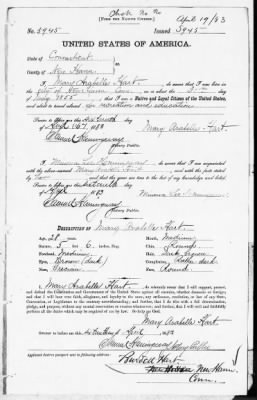 [FORM FOR NATIVE CITIZEN.]
April 19/83
No. 5945
Issued 5945
UNITED STATES OF AMERICA.
State of Connecticut
County of New Haven
I, Mary Arabella Hart, do swear that I was born
city of New Haven, Conn., on the 5th day
of 1855; that I am a Native and Loyal Citizen of the United States,
and about to travel abroad for recreation and education
Sworn to before me, this Sixteenth
day of April 1883
Mary Arabella Hart
Samuel Hemingway
Notary Public
I, Minerva Lee Hemingway, do swear that I am acquainted
with the above-named Mary Arabella Hart, and
, and that the facts
stated are true to the best of my knowledge and belief.
Sworn to before me, this Sixteenth
day of April 1883
Minerva Lee Hemingway
Samuel Hemingway
Notary Public
DESCRIPTION OF Mary Arabella Hart
Age, 28
Mouth, Medium
Stature, 5 6 inches, Eng.
Chin, Round
Forehead, Medium
Hair, Dark brown
Eyes, Brown (dark)
Complexion, Rather dark
Nose, Grecian
Face, Round
I, Mary Arabella Hart, do solemnly swear that I will support, protect,
and defend the Constitution and Government of the United States against all enemies, whether domestic or foreign;
and that I will bear true faith, allegiance, and loyalty to the same, any ordinance, resolution, or law of any State,
Convention, or Legislature to the contrary notwithstanding; and further, that I do this with a full determination,
pledge, and purpose, without any mental reservation or evasion whatsoever; and further, that I will well and faithfully
perform all the duties which may be required of me by law: So help me God.
Mary Arabella Hart
Sworn to before me, this Sixteenth day of April 1883
Samuel Hemingway Notary Public
Applicant desires passport sent to following address:
Burdett Hart
New Haven
Conn.